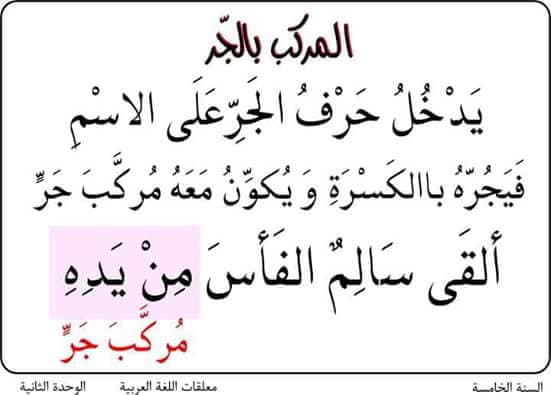 المركب بالجّر
يَدْخُلُ حَرْفُ الجَرِّ عَلَى الاسْمِ
فَيَجُرُّهُ باالكَسْرَةِ وَ يُكوِّنُ مَعَهُ مُركَّبَ جَرٍّ
ألقَى سَالِمٌ الفَأسَ مِنْ يَدِهِ
مُركَّبَ جَرٍّ
السنة الخامسة معلقات اللغة العربية الوحدة الثانية